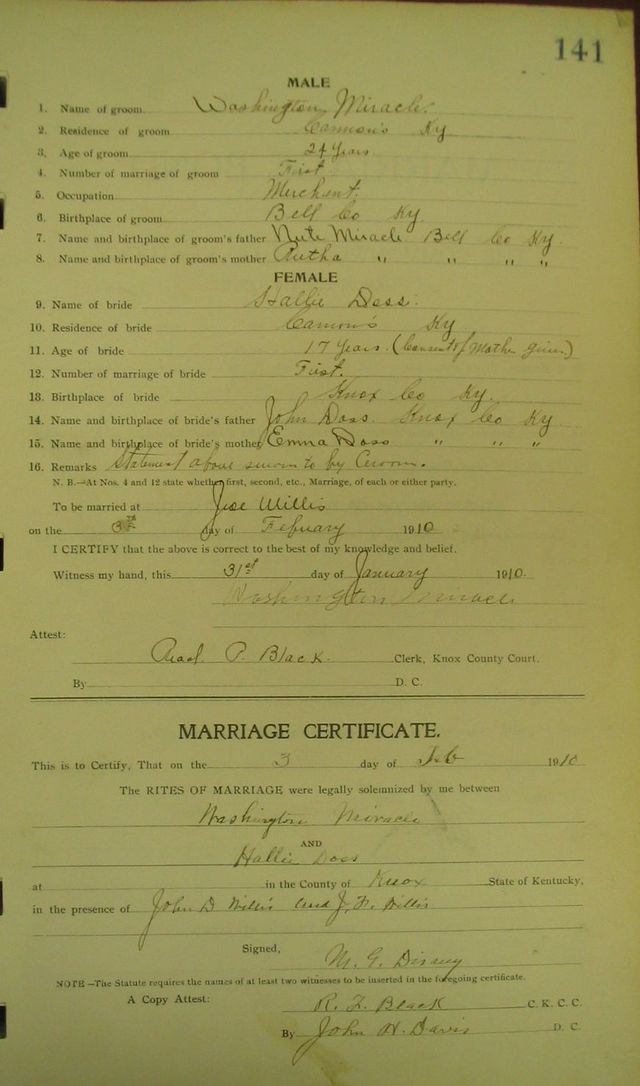 141
MALE
1. Name of groom Washington Miracle.
2. Residence of groom Cannon's Ky
3. Age of groom 24 Years
4. Number of marriage of groom First
5. Occupation Merchent.
6. Birthplace of groom Bell Co Ky
7. Name and birthplace of groom's father Nute Miracle Bell Co Ky.
8. Name and birthplace of groom's mother " " " "
FEMALE
9. Name of bride Hallie Doss.
10. Residence of bride Cannon's Ky
11. Age of bride 17 Years. (Consent of Mother given)
12. Number of marriage of bride First.
13. Birthplace of bride Knox Co Ky.
14. Name and birthplace of bride's father John Doss. Knox Co Ky
15. Name and birthplace of bride's mother Emma Doss " " "
16. Remarks Statement above sworn to by Groom.
N. B.—At Nos. 4 and 12 state whether first, second, etc., Marriage, of each or either party.
To be married at Jese Willis
on the 3rd day of Febuary 1910
I CERTIFY that the above is correct to the best of my knowledge and belief.
Witness my hand, this 31st day of January 1910.
Washington Miracle
Attest:
Read P. Black. Clerk, Knox County Court.
By D. C.
MARRIAGE CERTIFICATE.
This is to Certify, That on the 3 day of Feb 1910
The RITES OF MARRIAGE were legally solemnized by me between
Washington Miracle
AND
Hallie Doss
at in the County of Knox State of Kentucky,
in the presence of John D Willis and J. F. Willis
Signed,
M. G. Disney
NOTE—The Statute requires the names of at least two witnesses to be inserted in the foregoing certificate.
A Copy Attest: Black C. K. C. C.
By John H. Davis D. C.